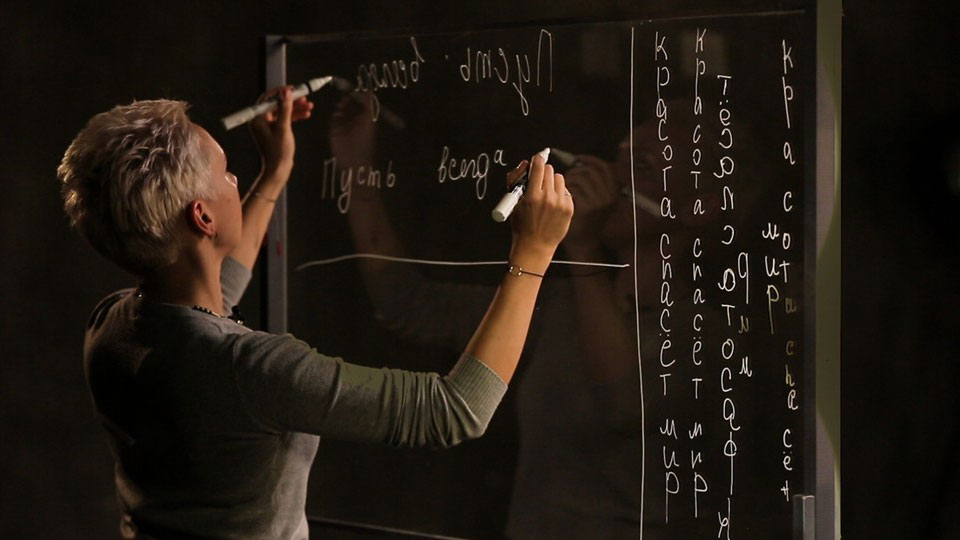 Пусть всегда
Пусть всегда
красота спасёт мир
красота спасёт мир
красота спасёт
мир